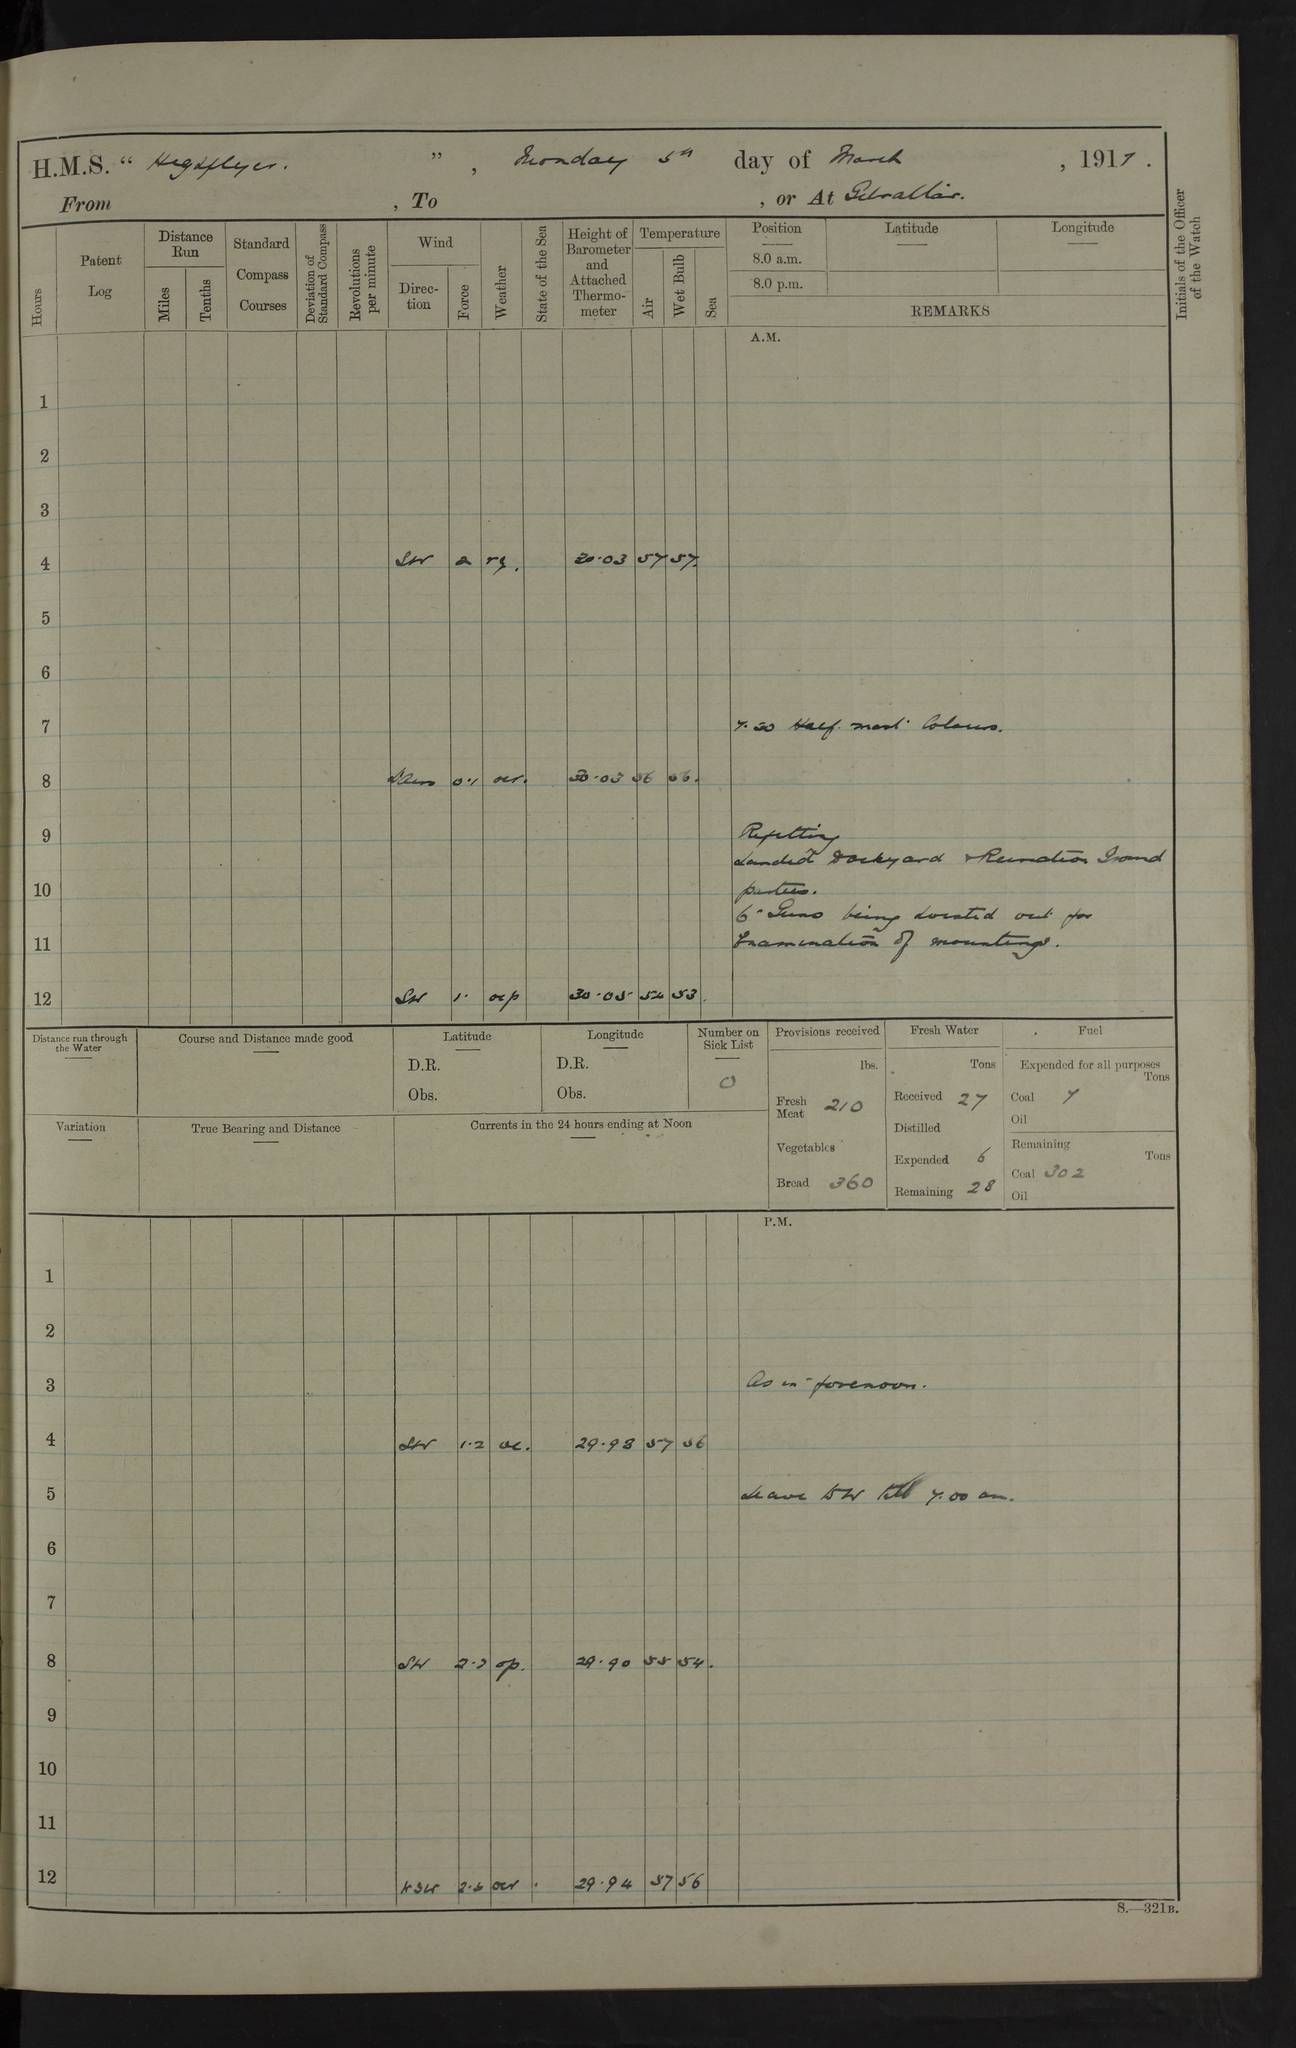 H.M.S. " Highflyer. " , Monday 5th day of March , 1917 .
From , To , or At Gibraltar.
Hours
Patent Log
Distance Run
Miles
Tenths
Standard Compass Courses
Deviation of Standard Compass
Revolutions per minute
Wind
Direction
Force
Weather
State of the Sea
Height of Barometer and Attached Thermometer
Temperature
Air
Wet Bulb
Sea
Position
8.0 a.m.
8.0 p.m.
Latitude
Longitude
REMARKS
Initials of the Officer of the Watch
A.M.
1
2
3
4 SW 2 30.03 57 57.
5
6
7 7.50 Half mast Colours.
8 0.1 ocr. 30.03 56 56.
9 Refitting
Landed Dockyard & Recreation Ground
10 parties.
6" Guns being hoisted out for
11 Examination of mountings.
12 SW 1. ocp 30.05 54 53.
Distance run through the Water
Course and Distance made good
Latitude
D.R.
Obs.
Longitude
D.R.
Obs.
Number on Sick List
0
Provisions received
lbs.
Fresh Meat 210
Vegetables
Bread 360
Fresh Water
Tons
Received 27
Distilled
Expended 6
Remaining 28
Fuel
Expended for all purposes
Tons
Coal 7
Oil
Remaining
Tons
Coal 302
Oil
Variation
True Bearing and Distance
Currents in the 24 hours ending at Noon
P.M.
1
2
3 As in forenoon.
4 SW 1.2 oc. 29.98 57 56
5 Leave to W till 7.00 am.
6
7
8 SW 2.3 op. 29.90 55 54.
9
10
11
12 WSW ocr 29.94 57 56
S.—321B.